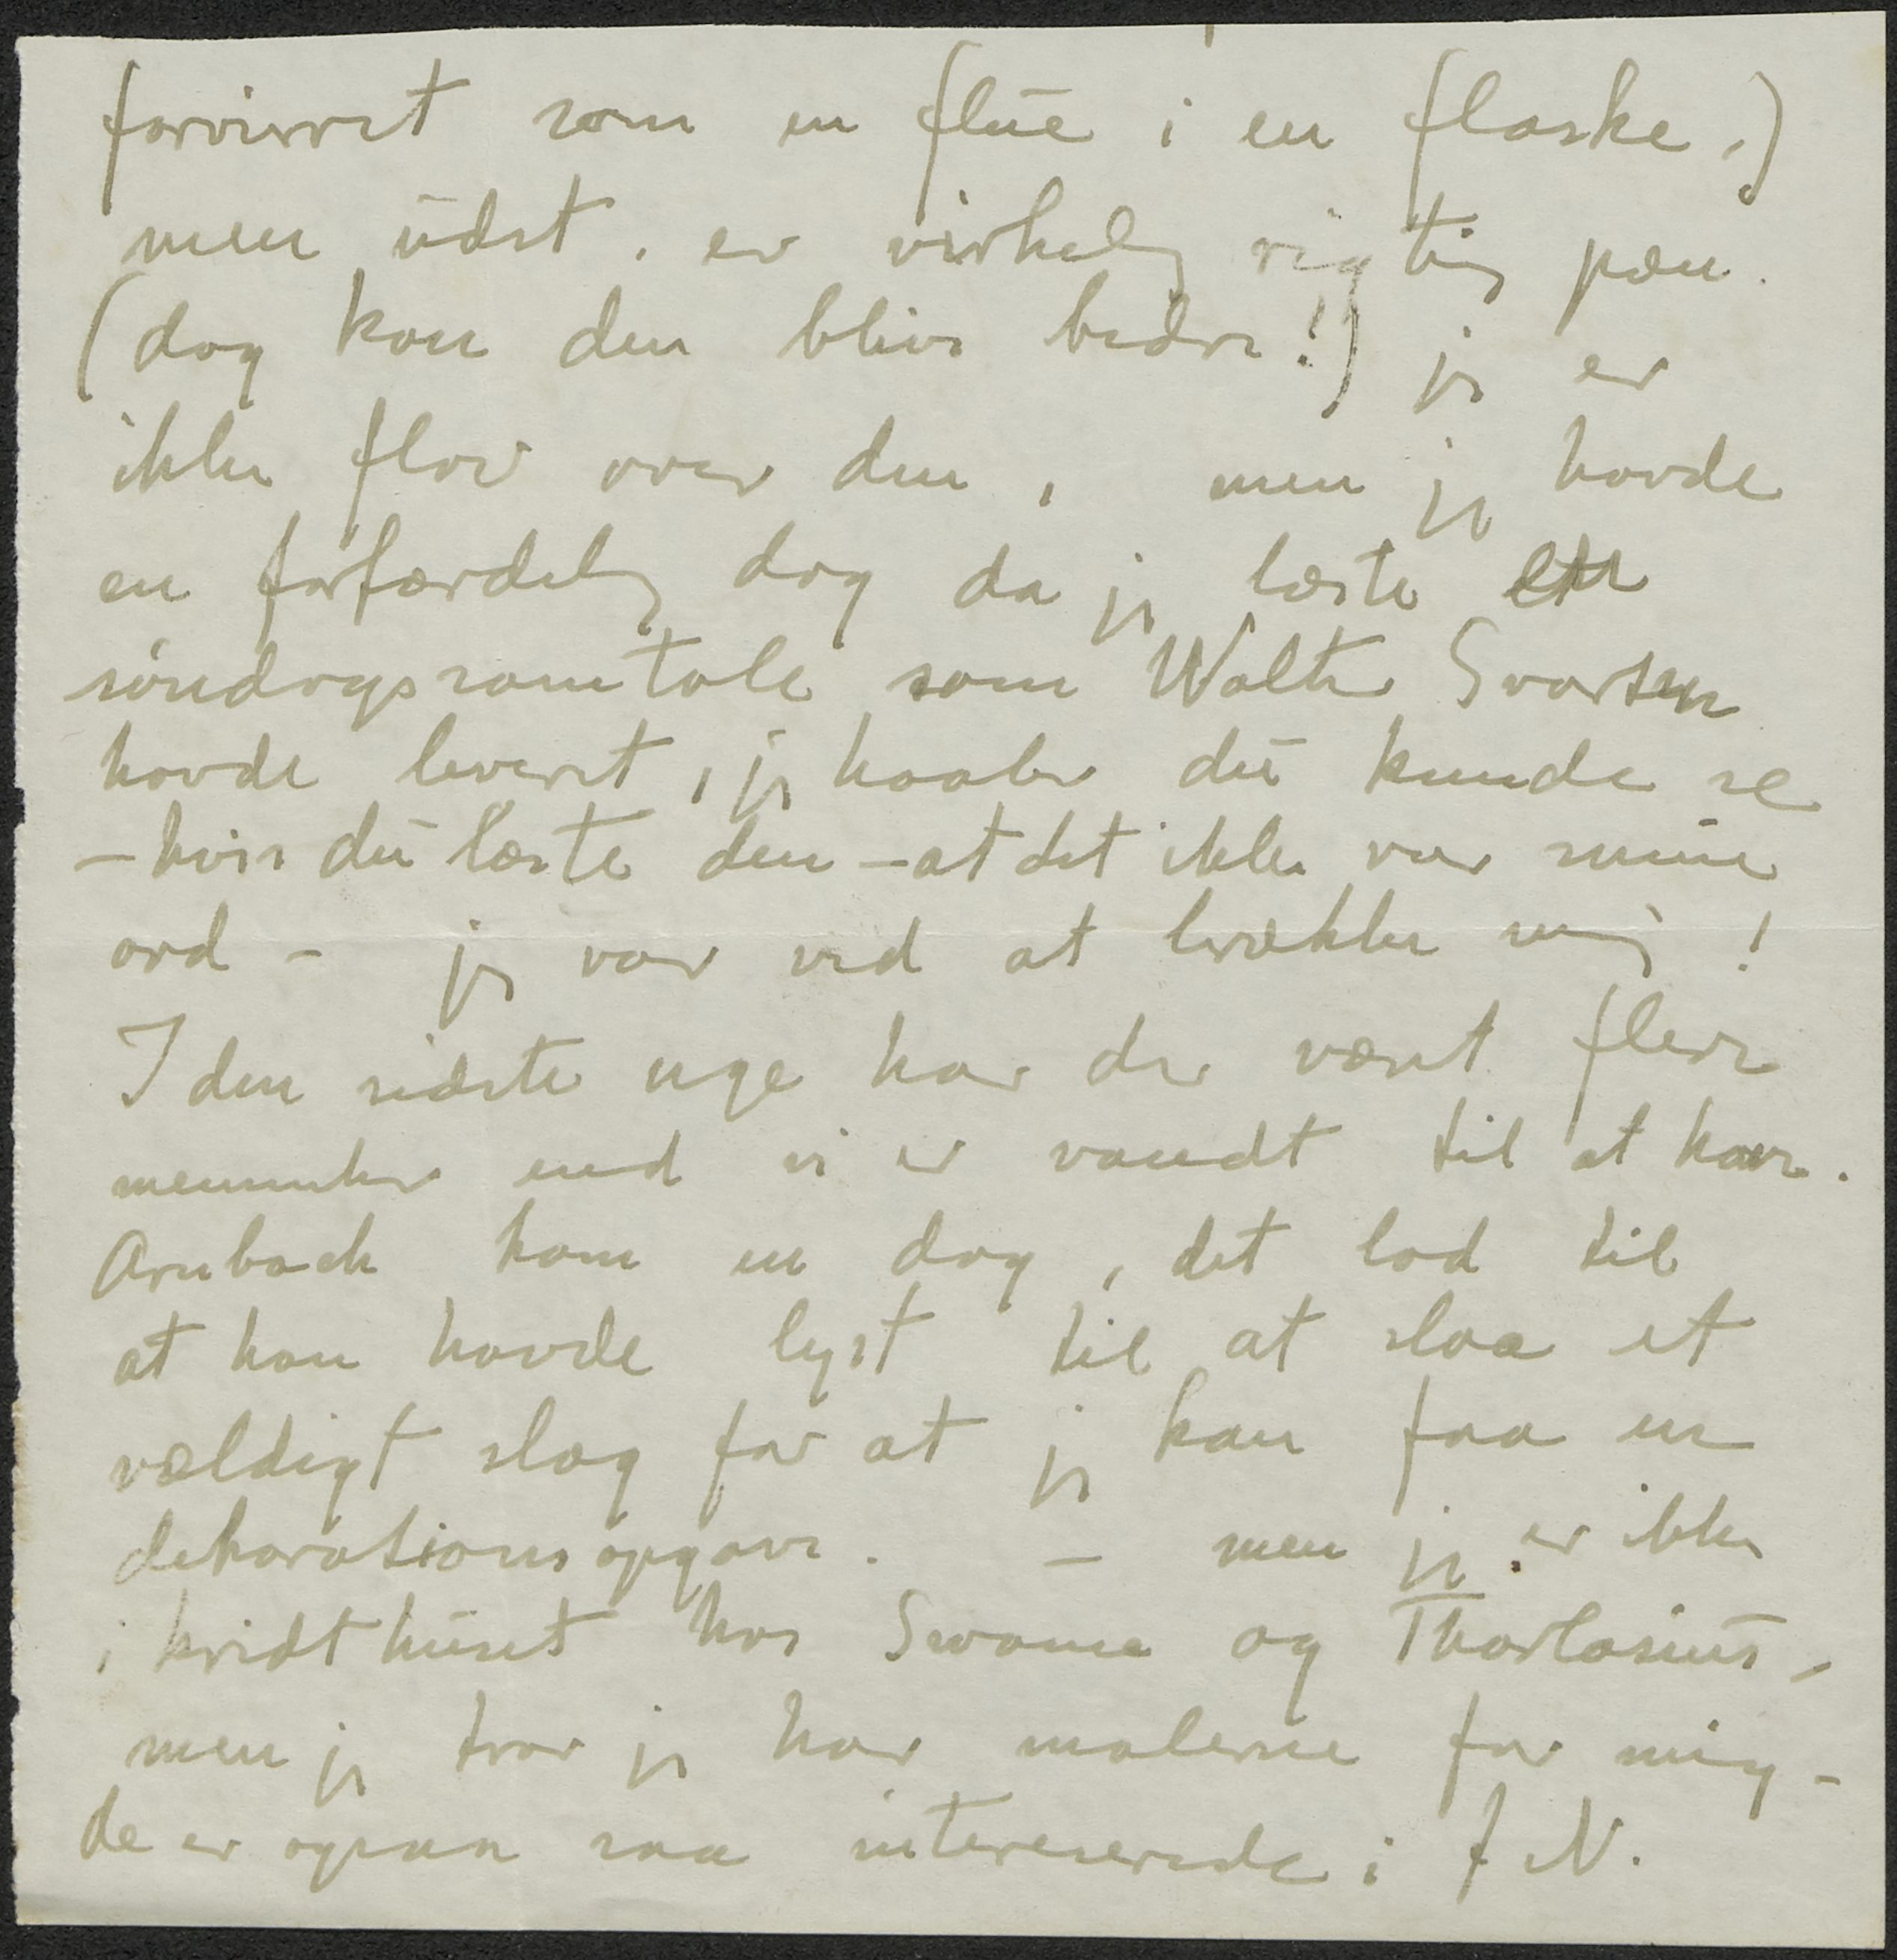 forvirret som en flue i en flaske,)
men udst. er virkelig rigtig pæn.
(dog kan den blive bedre!) jeg er
ikke flov over den, men jeg havde
en forfærdelig dag da jeg læste en
søndagssamtale som Walter Svarsen
havde leveret, jeg haaber du kunde se
- hvis du læste den - at det ikke var mine
ord - jeg var ved at brække mig!
I den sidste uge har der været flere
mennesker end vi er vandt til at have.
Arnbach kom en dag, det lod til
at han havde lyst til at slaa et
vældigt slag for at jeg kan faa en
dekorationsopgave. - men jeg er ikke
i kridthuset hos Swane og Thorlasius,
men jeg tror jeg har malerne for mig -
de er ogsaa saa interesserede i f N.